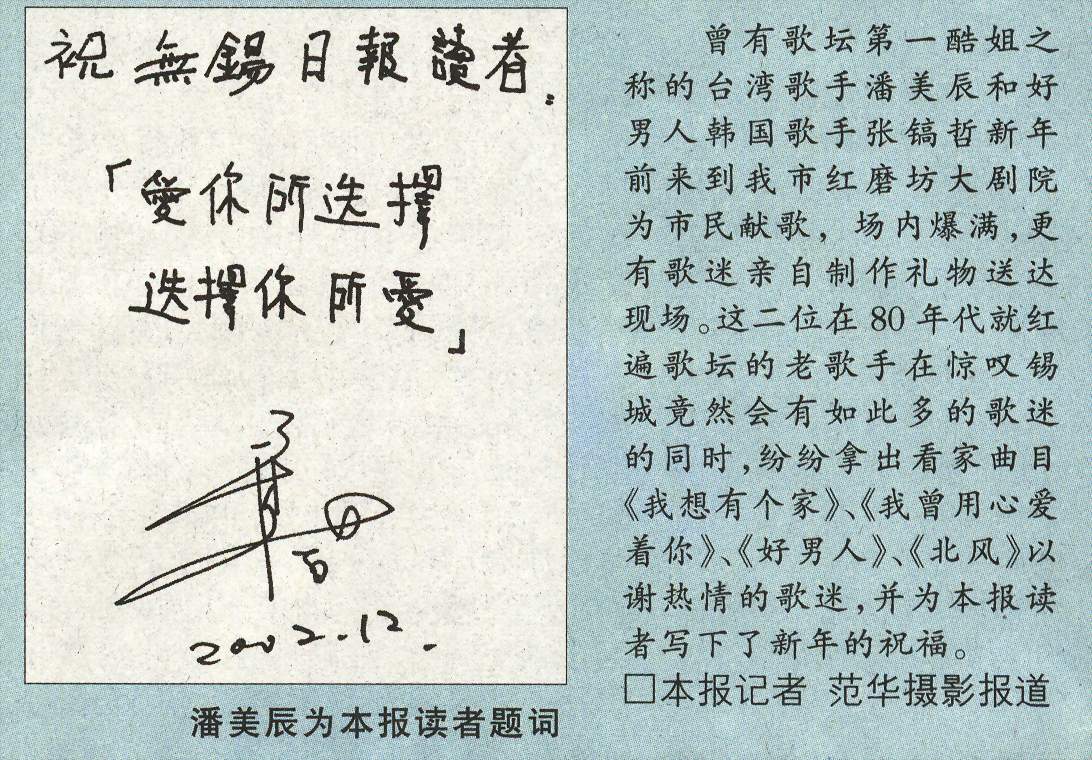 祝無錫日報讀者:
「愛你所选擇
选擇你所愛」
2002.12.
潘美辰为本报读者题词
曾有歌坛第一酷姐之
称的台湾歌手潘美辰和好
男人韩国歌手张镐哲新年
前来到我市红磨坊大剧院
为市民献歌，场内爆满，更
有歌迷亲自制作礼物送达
现场。这二位在80年代就红
遍歌坛的老歌手在惊叹锡
城竟然会有如此多的歌迷
的同时，纷纷拿出看家曲目
《我想有个家》、《我曾用心爱
着你》、《好男人》、《北风》以
谢热情的歌迷，并为本报读
者写下了新年的祝福。
□本报记者 范华摄影报道